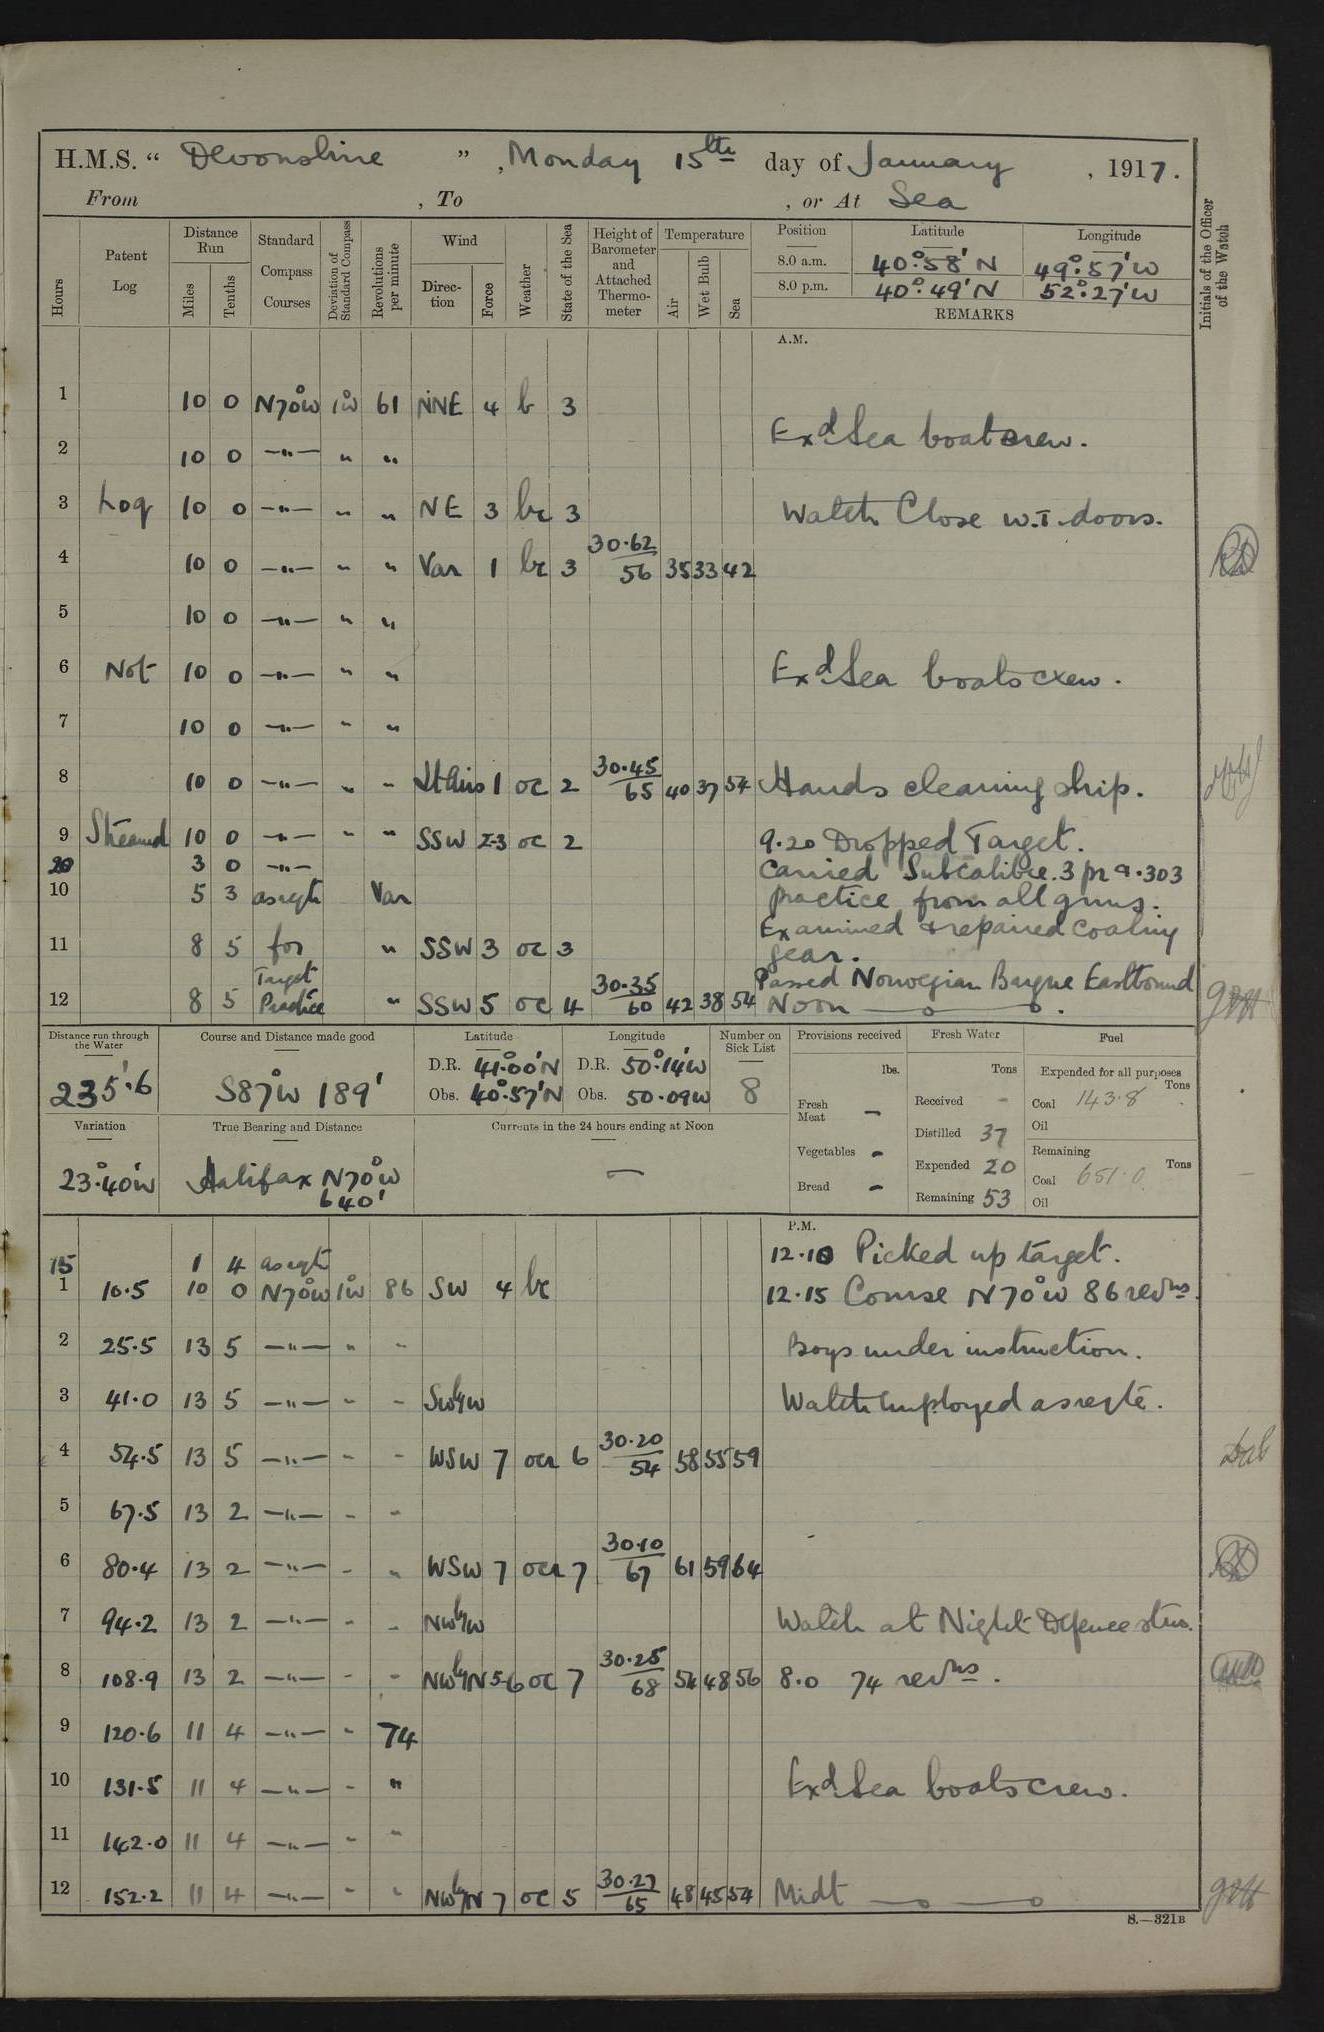 H.M.S. " Devonshire ", Monday 15th day of January, 1917.
From , To , or At Sea
Hours
Patent Log
Distance Run
Miles
Tenths
Standard Compass Courses
Deviation of Standard Compass
Revolutions per minute
Wind
Direction
Force
Weather
State of the Sea
Height of Barometer and Attached Thermometer
Temperature
Air
Wet Bulb
Sea
Position Latitude Longitude
8.0 a.m. 40°.58'N 49°.57'W
8.0 p.m. 40°.49'N 52°.27'W
REMARKS
Initials of the Officer of the Watch
A.M.
1 10 0 N70°W 1°W 61 NNE 4 b 3
Exd Sea boat crew.
2 10 0 —"— " "
3 Log 10 0 —"— " " NE 3 bc 3 Watch Close W.T. doors.
4 10 0 —"— " " Var 1 bc 3 30.62/56 35 33 42
5 10 0 —"— " "
6 Not 10 0 —"— " " Exd Sea boats crew.
7 10 0 —"— " "
8 10 0 —"— " " Lt Airs 1 oc 2 30.45/65 40 37 54 Hands cleaning ship.
9 Streamed 10 0 —"— " " SSW 2-3 oc 2 9.20 Dropped Target.
20 3 0 —"— Carried Subcalibre. 3 pr & .303
10 5 3 as reqte Var practice from all guns.
Examined & repaired coaling
11 8 5 for " SSW 3 oc 3 gear.
Target Passed Norwegian Barque Eastbound
12 8 5 Practice " SSW 5 oc 4 30.35/60 42 38 54 Noon
Distance run through the Water
235'.6
Course and Distance made good
S87°W 189'
Latitude
D.R. 41°.00'N
Obs. 40°.57'N
Longitude
D.R. 50°.14'W
Obs. 50.09W
Number on Sick List
8
Provisions received
lbs.
Fresh Meat —
Vegetables -
Bread -
Fresh Water
Tons
Received -
Distilled 37
Expended 20
Remaining 53
Fuel
Expended for all purposes
Tons
Coal 143.8
Oil
Remaining
Tons
Coal 651.0
Oil
Variation
23°.40'W
True Bearing and Distance
Halifax N70°W
640'
Currents in the 24 hours ending at Noon
—
P.M.
15 1 4 as reqte 12.10 Picked up target.
1 10.5 10 0 N70°W 1°W 86 SW 4 bc 12.15 Course N70°W 86 revns.
2 25.5 13 5 —"— " " Boys under instruction.
3 41.0 13 5 —"— " " SWbyW Watch employed as reqte.
4 54.5 13 5 —"— " " WSW 7 ocr 6 30.20/54 58 55 59
5 67.5 13 2 —"— " "
6 80.4 13 2 —"— " " WSW 7 ocr 7 30.10/67 61 59 64
7 94.2 13 2 —"— " " NWbyW Watch at Night Defence stns.
8 108.9 13 2 —"— " " NWbyN 5-6 oc 7 30.25/68 54 48 56 8.0 74 revns.
9 120.6 11 4 —"— " 74
10 131.5 11 4 —"— " " Exd Sea boats crew.
11 142.0 11 4 —"— " "
12 152.2 11 4 —"— " " NWbyN 7 oc 5 30.27/65 48 45 54 Midt
S.—321B